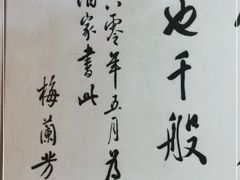 也千般
六零年五月為
家書此
梅蘭芳